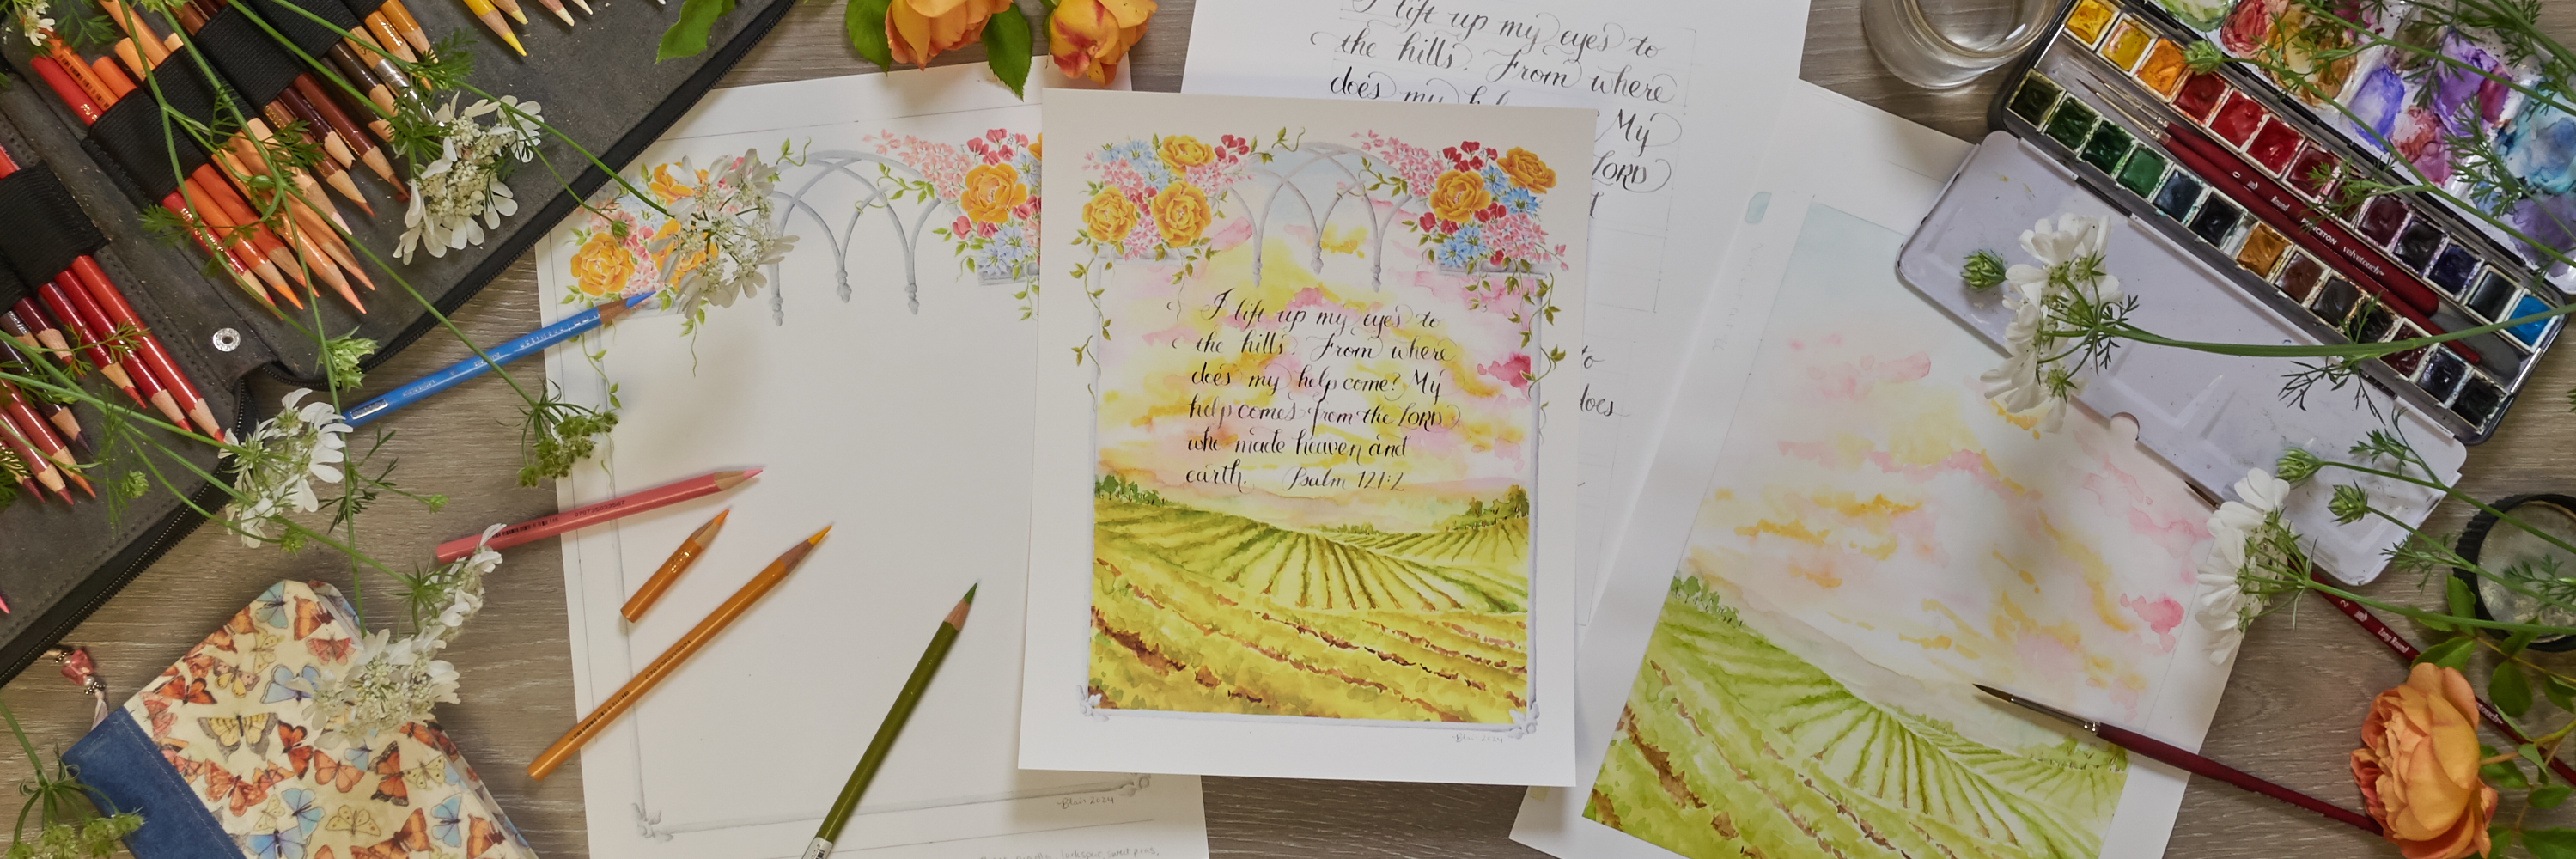 I lift up my eyes to
the hills. From where
does my
My
LORD
to
does
I lift up my eyes to
the hills. From where
does my help come? My
help comes from the LORD
who made heaven and
earth. Psalm 121:2
Blair 2024
Blair 2024
PRINCETON velvetouch
Round
Long Round